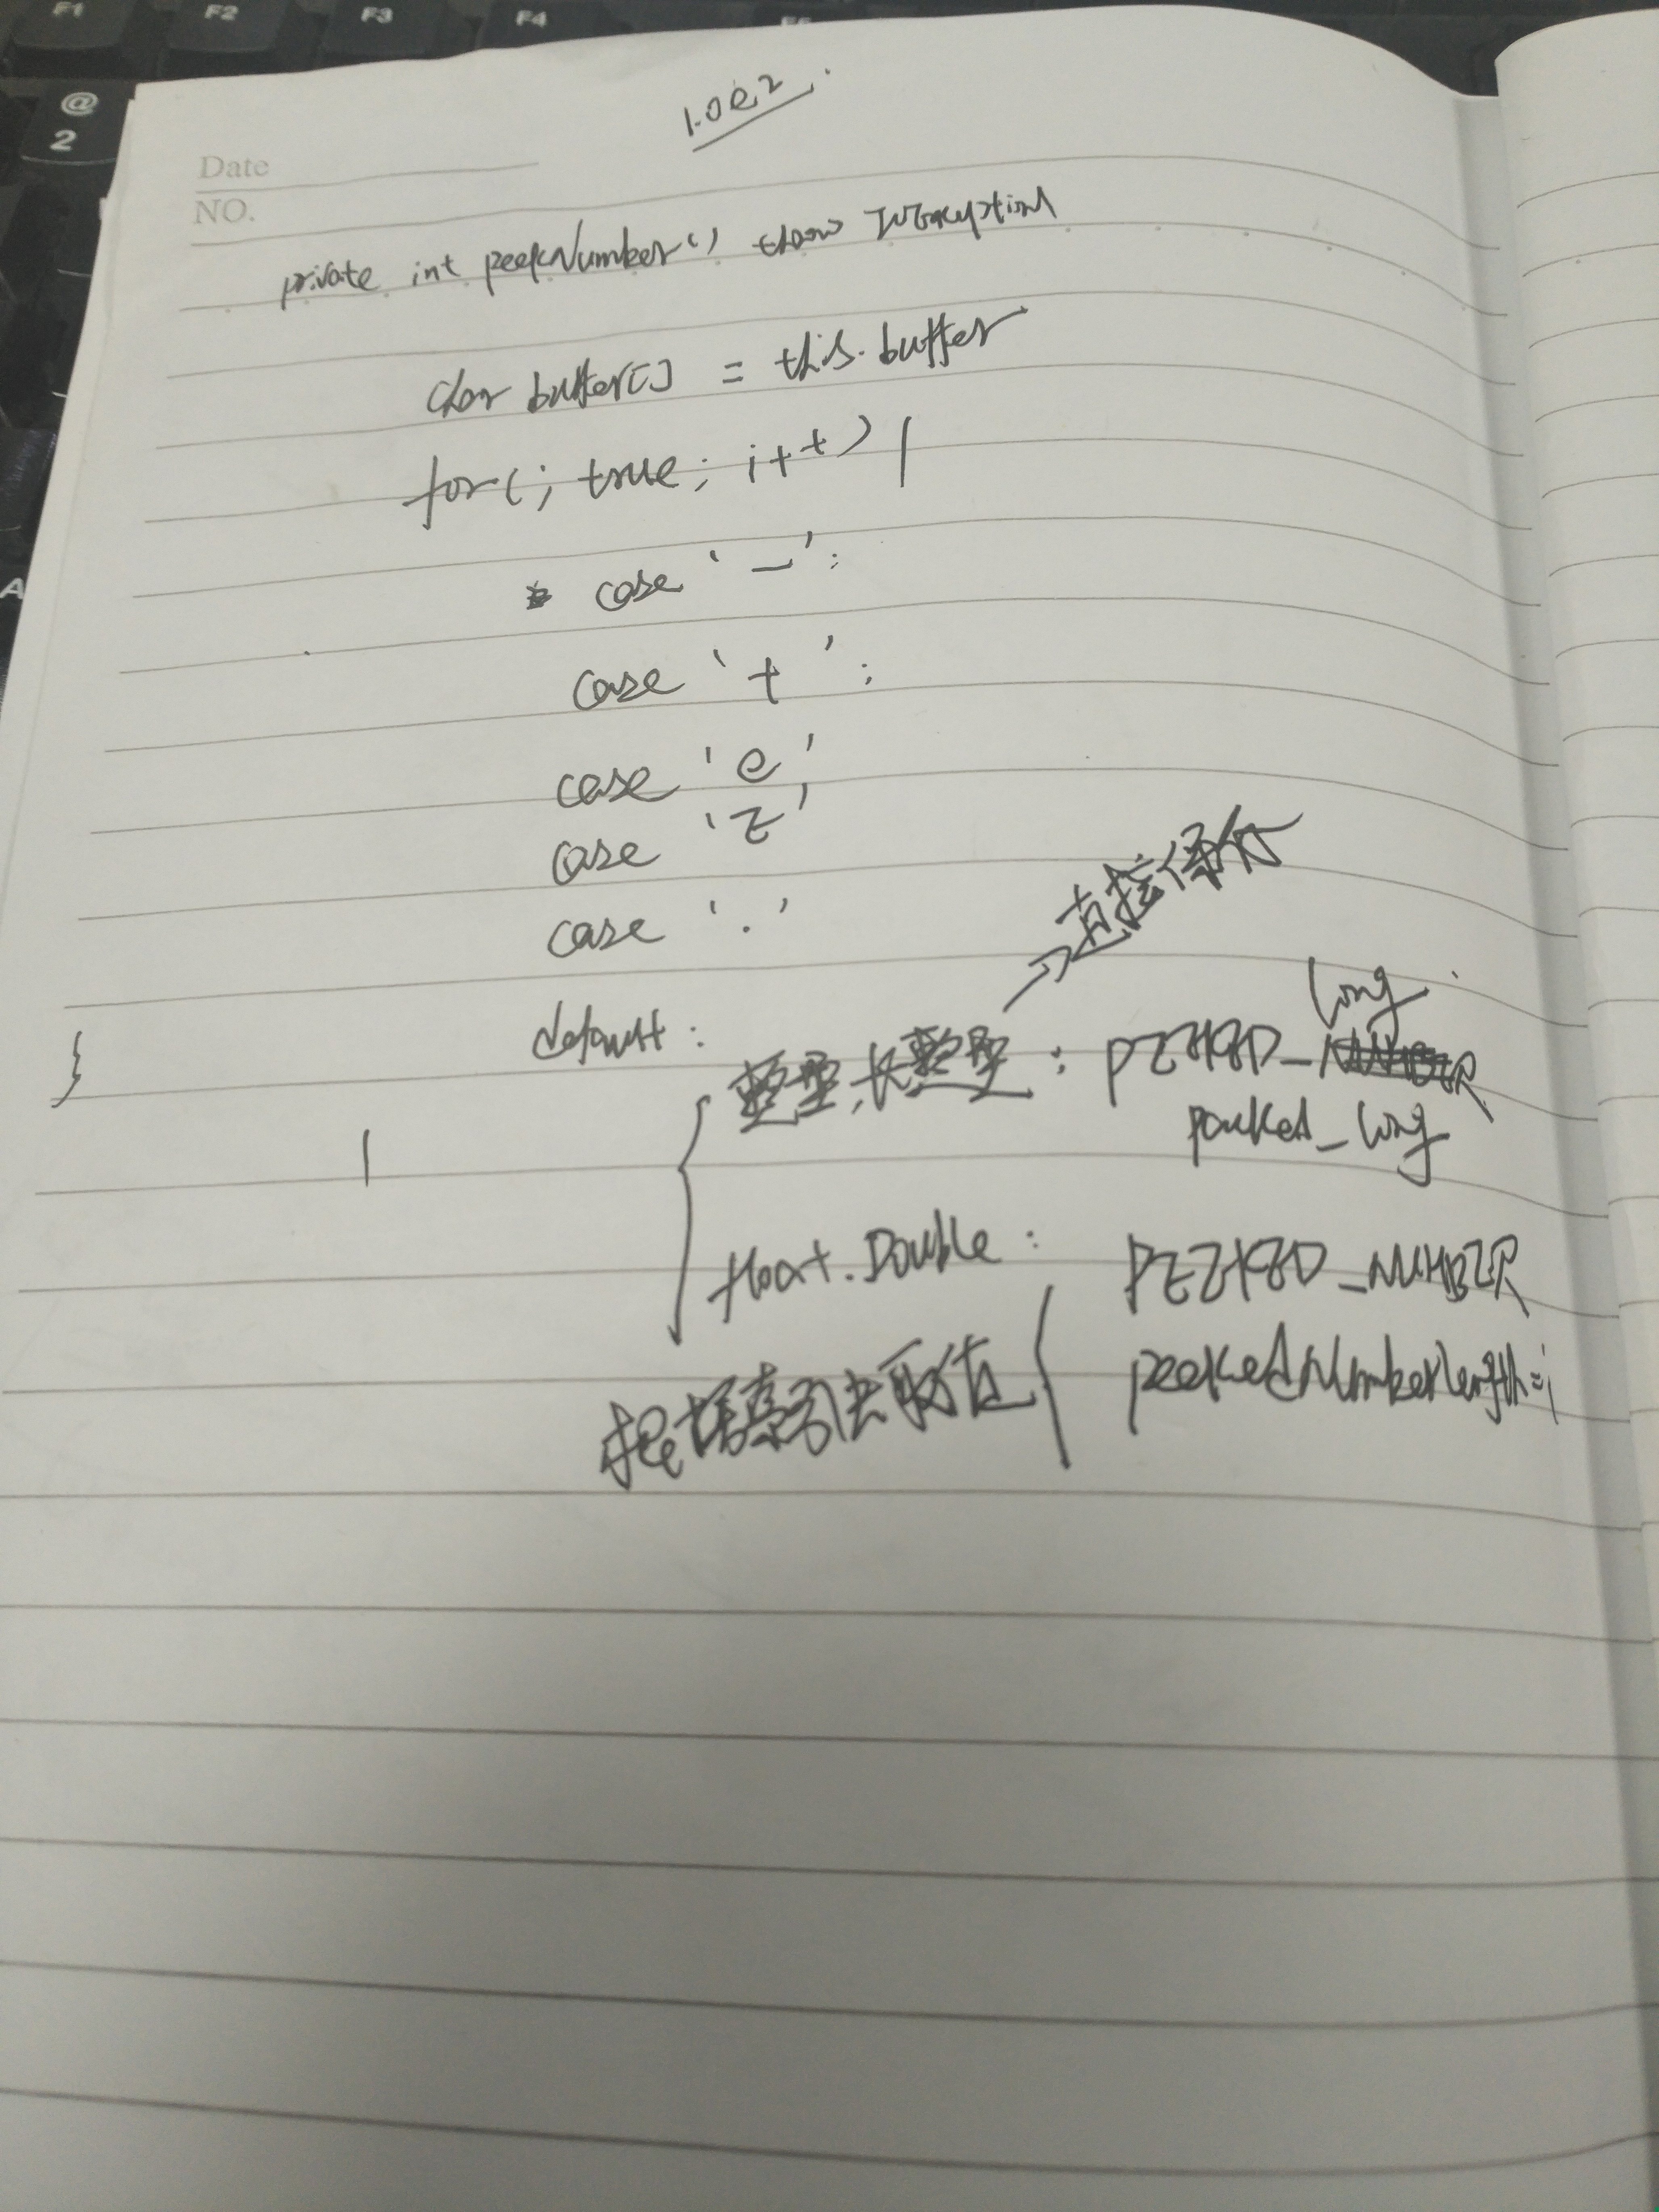 F1 F2 F3 F4
@
2
A
1.0e2
Date
NO.
private int peekNumber() throw IOException
char buffer[] = this.buffer
for(; true; i++) {
case '-':
case '+':
case 'e'
case 'E'
case '.'
→直接保存
default:
long
整型,长整型: PEEKED_
}
peeked_long
float.Double: PEEKED_NUMBER
根据索引去取值 { peekedNumberLength=i